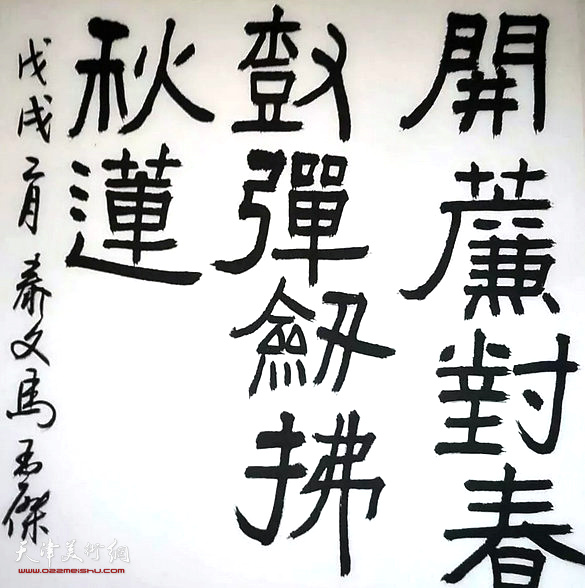 開薕對春
彈劒拂
秋蓮
戊戌二月 文馬 傑
天津美術網
www.022meishu.com